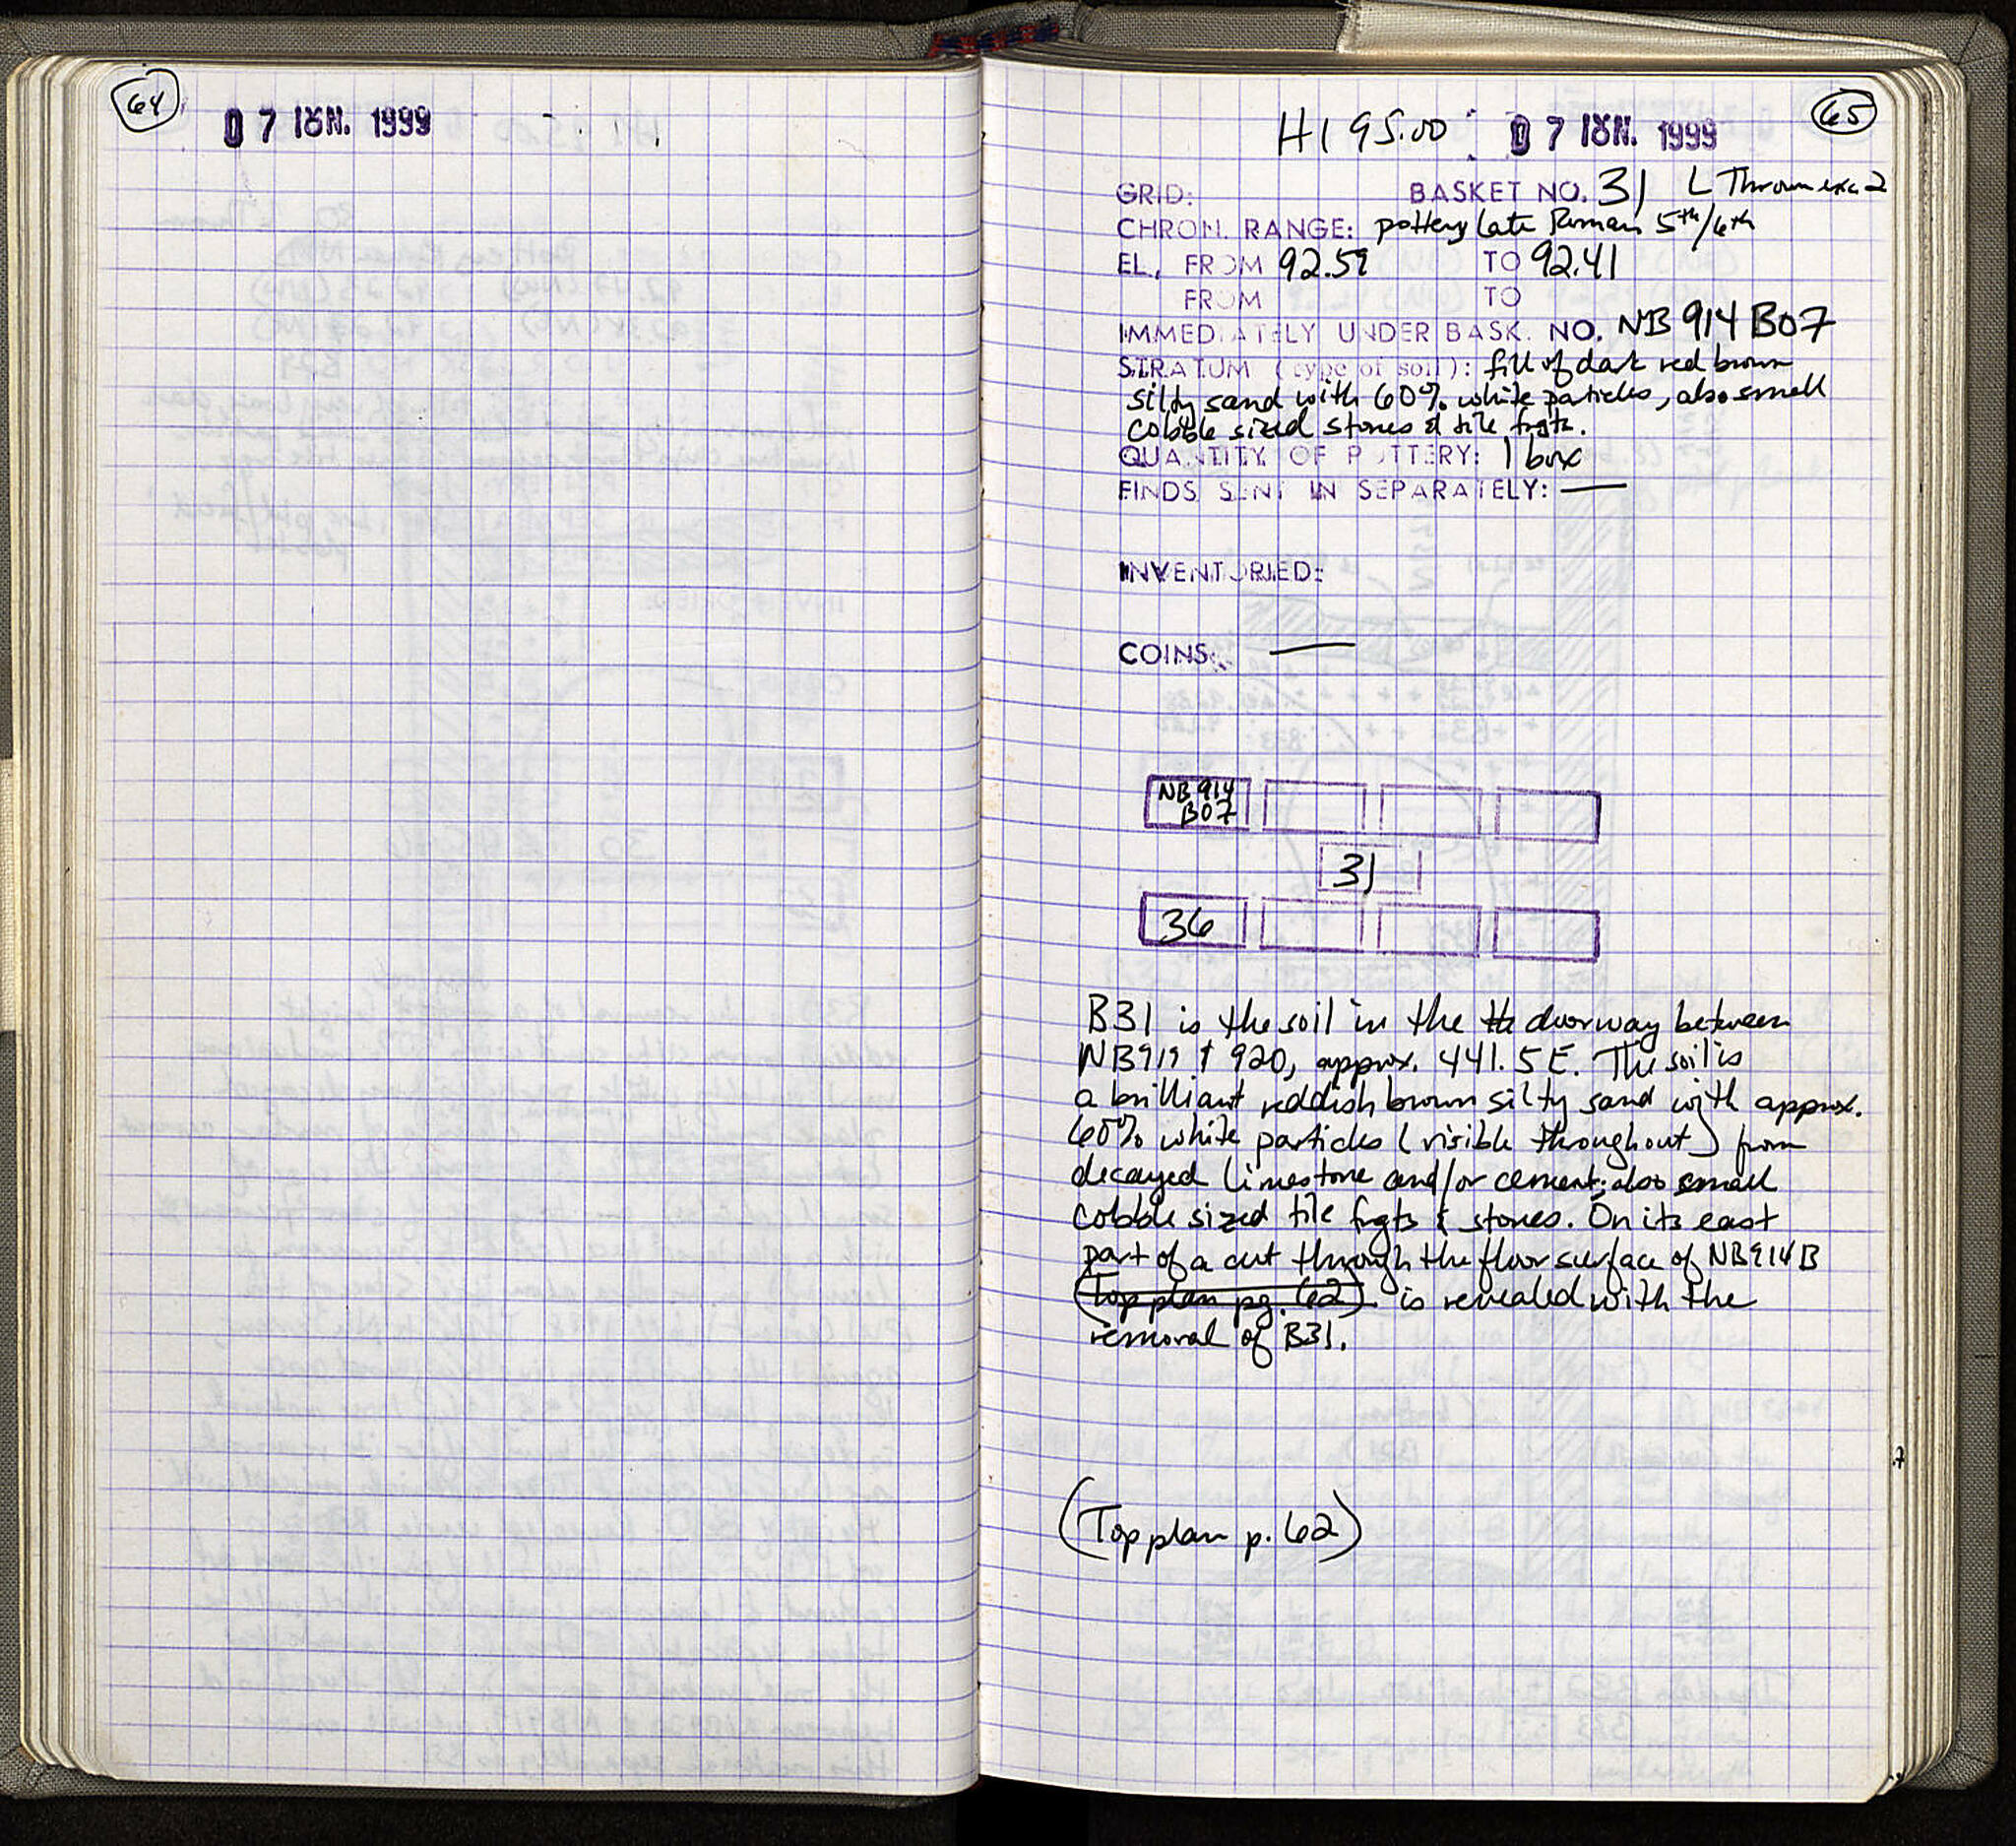 64
07 ΙΟΥΝ. 1999
65
HI 95.00 07 ΙΟΥΝ. 1999
GRID: BASKET NO. 31 L Thrown exc 2
CHRON. RANGE: pottery late Roman 5th/6th
EL, FROM 92.59 TO 92.41
FROM TO
IMMEDIATELY UNDER BASK. NO. NB 914 B07
STRATUM (type of soil): fill of dark red brown
silty sand with 60% white particles, also small
cobble sized stones & tile frgts.
QUANTITY OF POTTERY: 1 box
FINDS SENT IN SEPARATELY: —
INVENTORIED:
COINS: —
NB 914
B07
31
36
B31 is the soil in the th doorway between
NB919 & 920, approx. 441.5 E. The soil is
a brilliant reddish brown silty sand with approx.
60% white particles (visible throughout) from
decayed limestone and/or cement; also small
cobble sized tile frgts & stones. On its east
part of a cut through the floor surface of NB914B
(Top plan pg. 62) is revealed with the
removal of B31.
(Top plan p. 62)